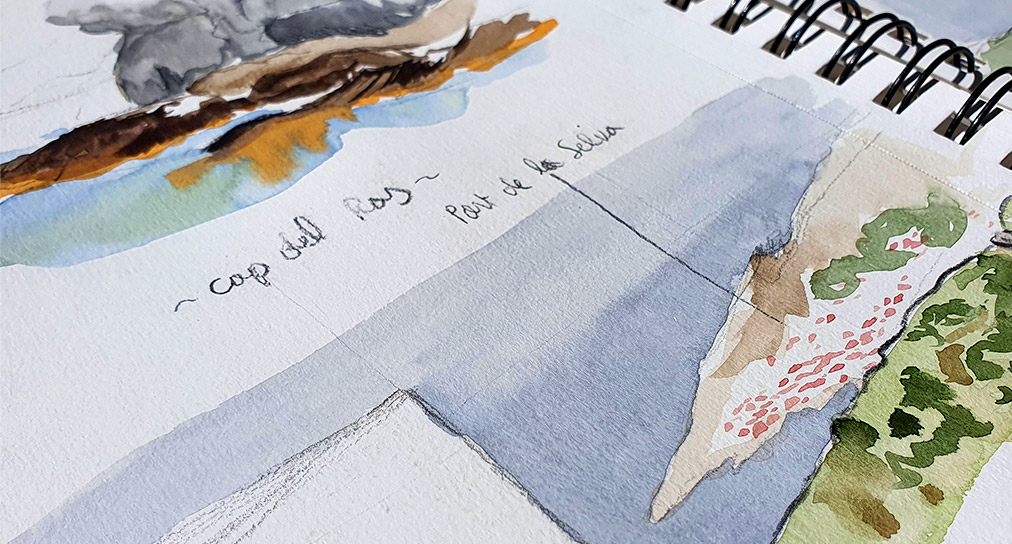 ~ Cap dell Ras ~
Port de la Selva